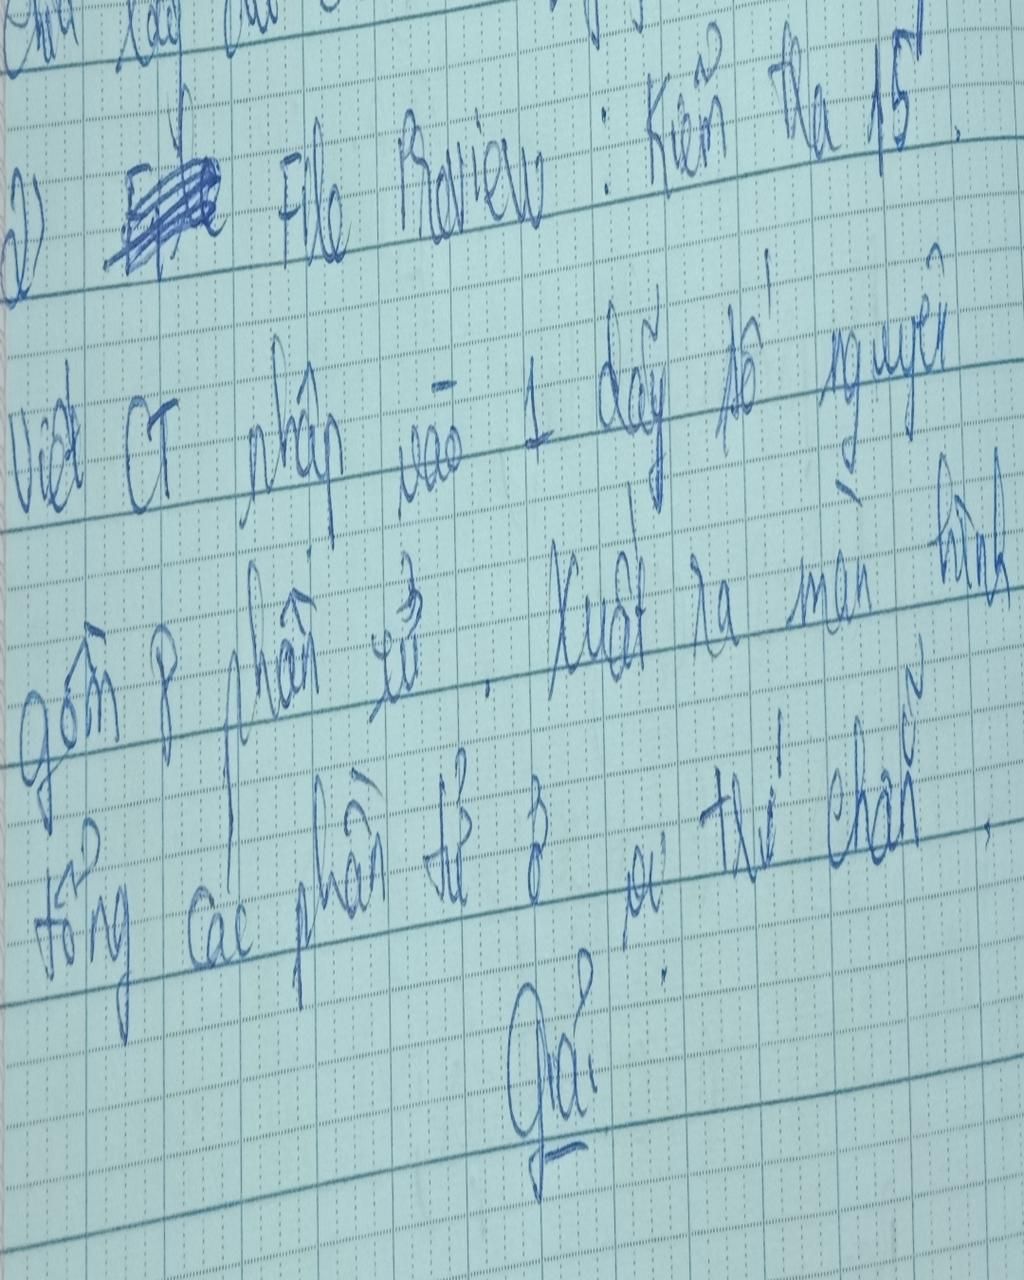 2) File Review : Kiểm tra 15'.
Viết CT nhập vào 1 dãy số nguyên
gồm 8 phần tử. Xuất ra màn hình
tổng các phần tử ở vị trí chẵn.
Giải